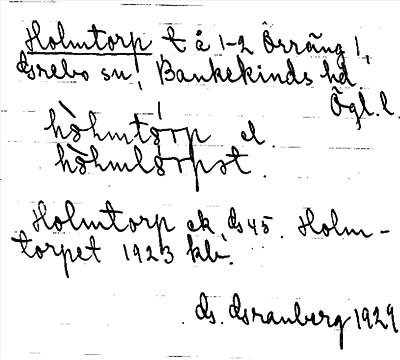 Holmtorp t å 1-2 Örräng 1,
Örebo sn, Bankekinds hd.
Ögl. l.
hòhmtórp el.
hòhmtorpət.
Holmtorp ek. bl 45. Holm-
torpet 1923 kb.
1929